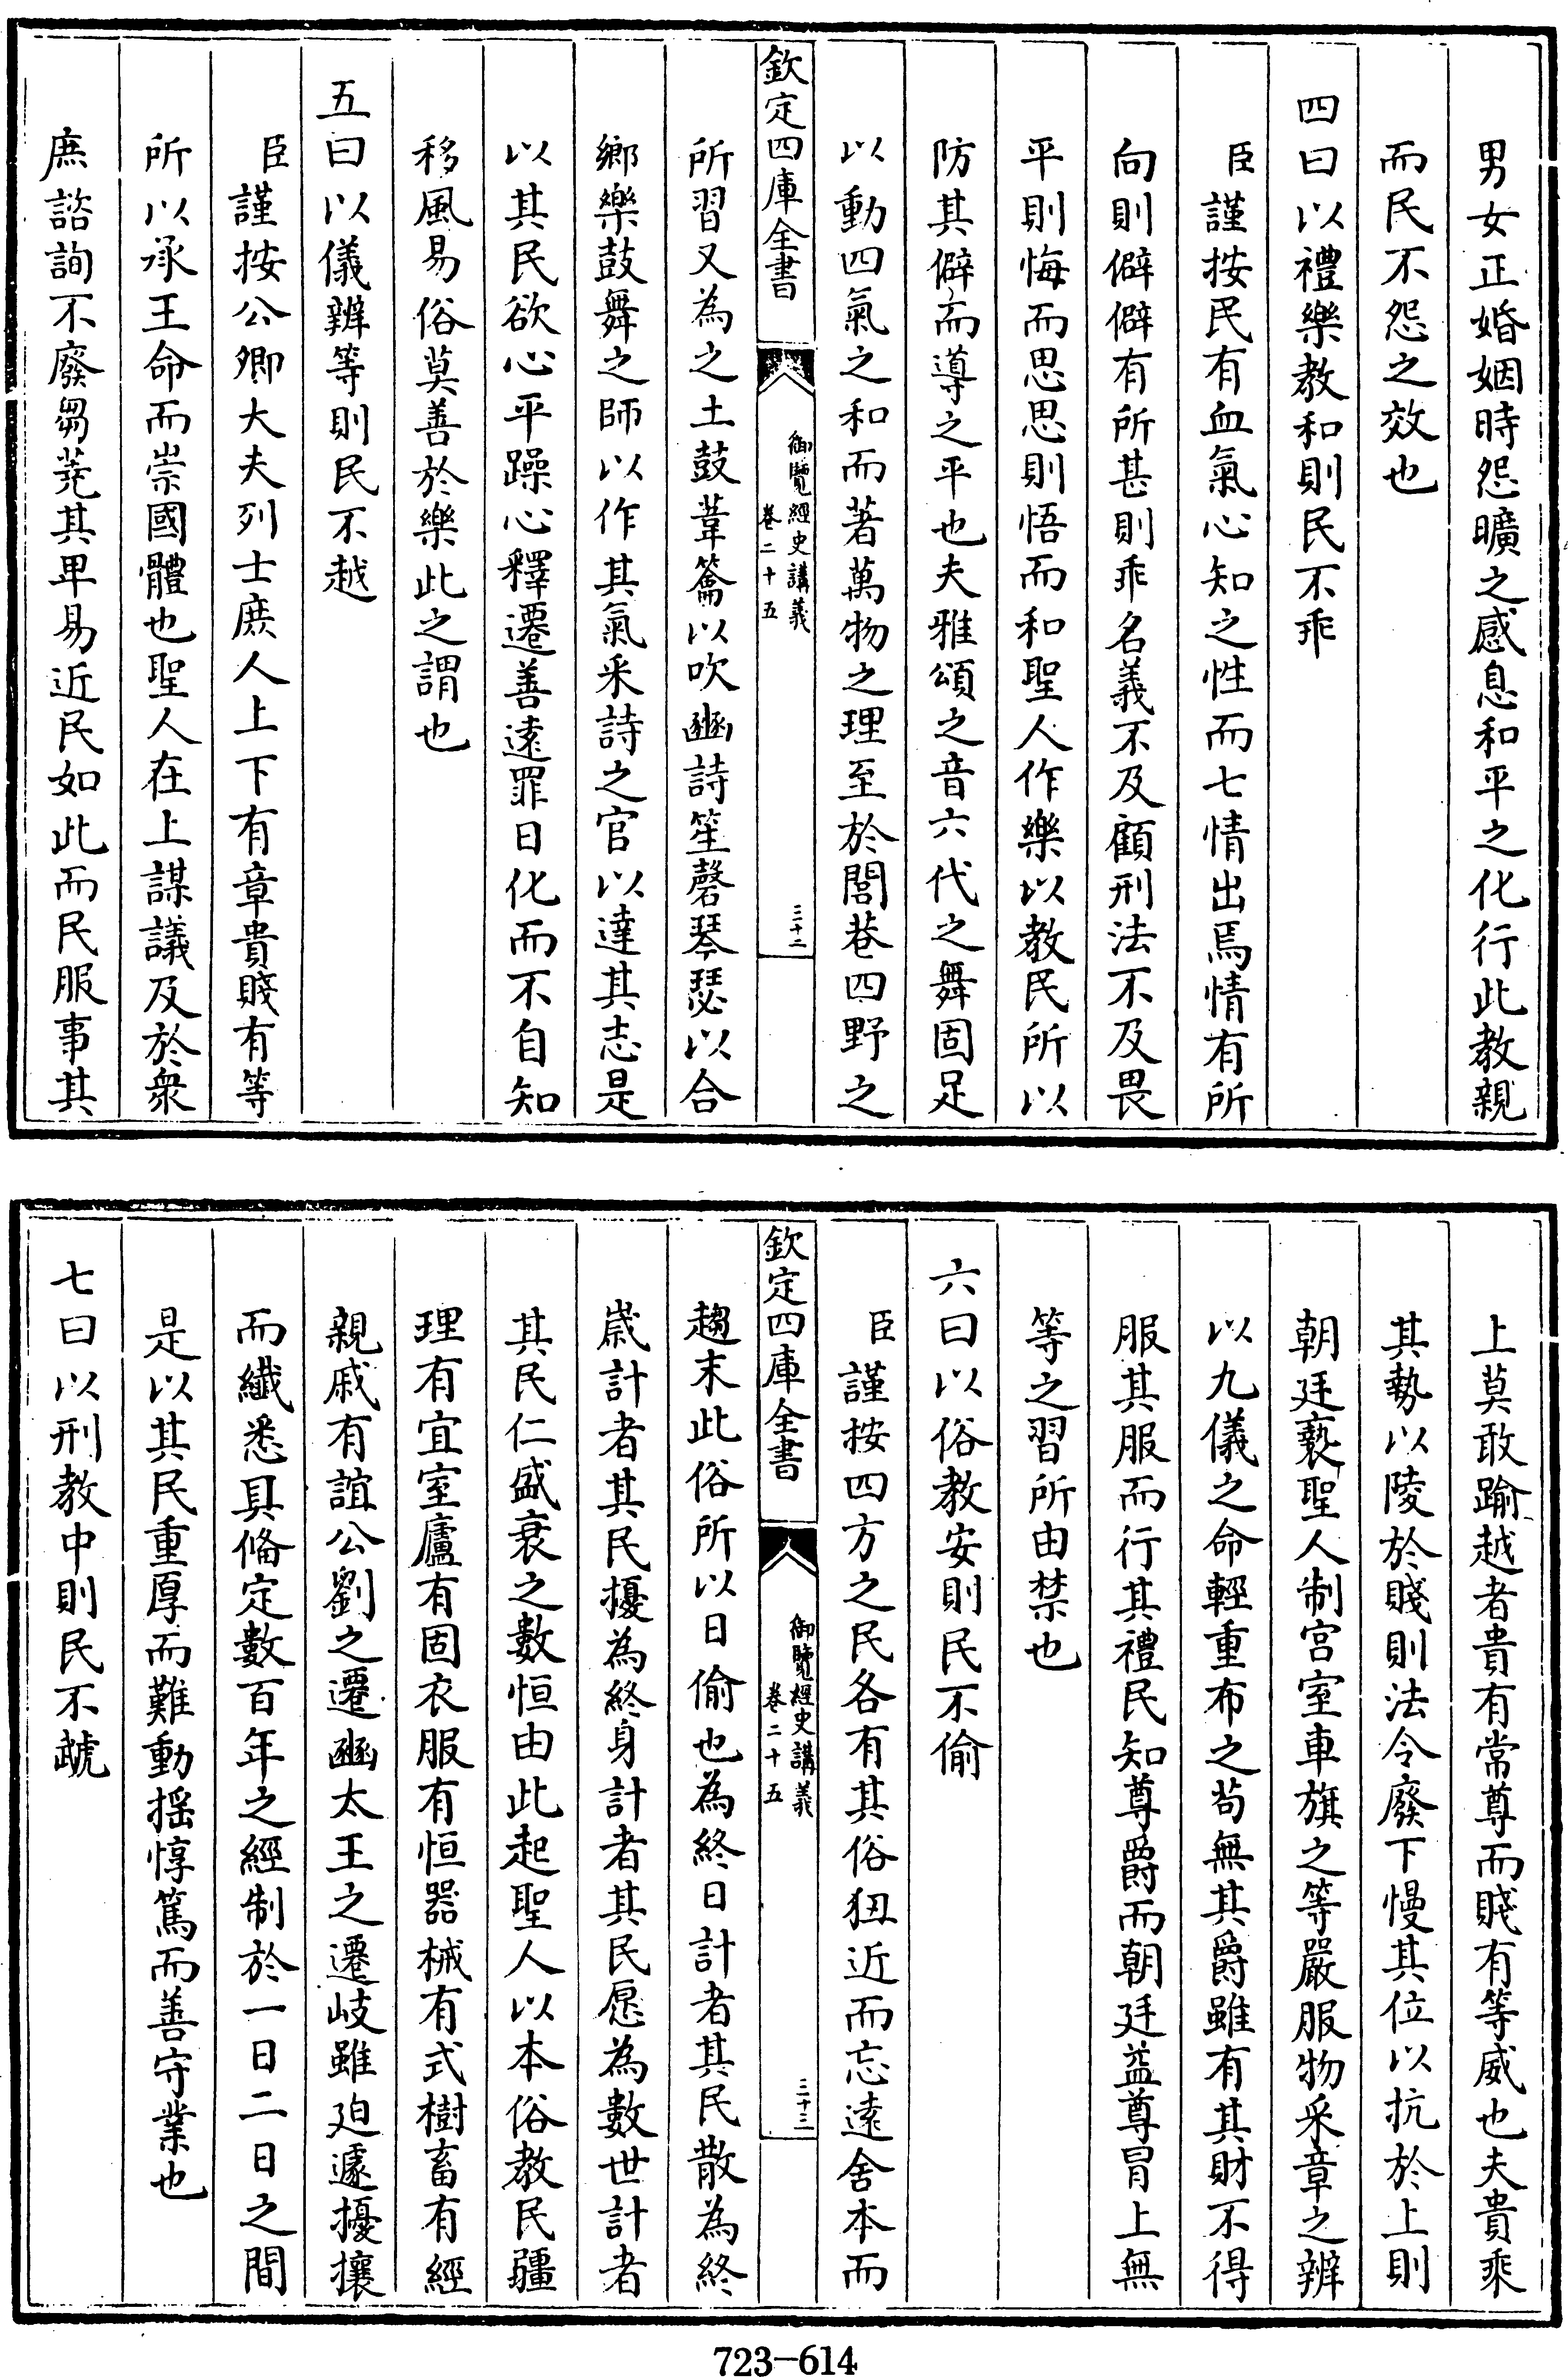 男女正婚姻時怨曠之感息和平之化行此教親
而民不怨之效也
四曰以禮樂教和則民不乖
臣謹按民有血氣心知之性而七情出焉情有所
向則僻僻有所甚則乖名義不及顧刑法不及畏
平則悔而思思則悟而和聖人作樂以教民所以
防其僻而導之平也夫雅頌之音六代之舞固足
以動四氣之和而著萬物之理至於閭巷四野之
欽定四庫全書
御覽經史講義
卷二十五
三十二
所習又為之土鼓葦籥以吹豳詩笙磬琴瑟以合
鄉樂鼓舞之師以作其氣采詩之官以達其志是
以其民欲心平躁心釋遷善遠罪日化而不自知
移風易俗莫善於樂此之謂也
五曰以儀辨等則民不越
臣謹按公卿大夫列士庶人上下有章貴賤有等
所以承王命而崇國體也聖人在上謀議及於衆
庶諮詢不廢芻蕘其卑易近民如此而民服事其
上莫敢踰越者貴有常尊而賤有等威也夫貴乘
其勢以陵於賤則法令廢下慢其位以抗於上則
朝廷褻聖人制宫室車旗之等嚴服物采章之辨
以九儀之命輕重布之茍無其爵雖有其財不得
服其服而行其禮民知尊爵而朝廷益尊冒上無
等之習所由禁也
六曰以俗教安則民不偷
臣謹按四方之民各有其俗狃近而忘遠舍本而
欽定四庫全書
御覽經史講義
卷二十五
三十三
趨末此俗所以日偷也為終日計者其民散為終
嵗計者其民擾為終身計者其民愿為數世計者
其民仁盛衰之數恒由此起聖人以本俗教民疆
理有宜室廬有固衣服有恒器械有式樹畜有經
親戚有誼公劉之遷豳太王之遷岐雖廹遽擾攘
而纖悉具偹定數百年之經制於一日二日之間
是以其民重厚而難動揺惇篤而善守業也
七曰以刑教中則民不虣
723-614